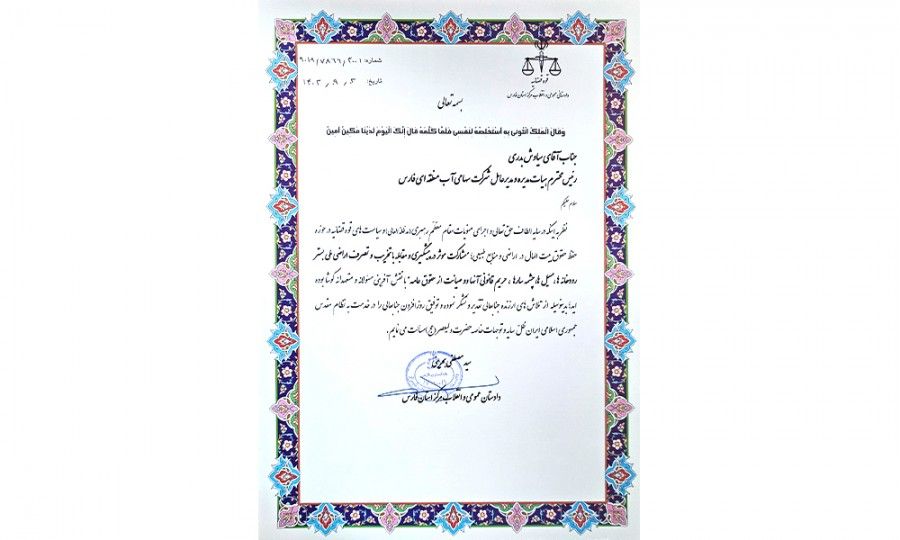 شماره: ۹۰۱۹/۷۸۶۶/۲۰۰۱
تاریخ: ۱۴۰۳/۹/۳
قوه قضائیه
دادستانی عمومی و انقلاب مرکز استان فارس
بسمه تعالی
وَقالَ المَلِکُ ائتونی بِهِ أَستَخلِصهُ لِنَفسی فَلَمّا کَلَّمَهُ قالَ إِنَّکَ الیَومَ لَدَینا مَکینٌ أَمینٌ
جناب آقای سیاوش بدری
رئیس محترم هیات مدیره و مدیرعامل شرکت سهامی آب منطقه ای فارس
سلام علیکم
نظر به اینکه در سایه الطاف حق تعالی و اجرای منویات مقام معظم رهبری (مدظله العالی) و سیاست های قوه قضائیه در حوزه
حفظ حقوق بیت المال در اراضی و منابع طبیعی؛ مشارکت موثر در پیشگیری و مقابله با تخریب و تصرف اراضی ملی بستر
رودخانه ها، مسیل ها، چشمه سارها، حریم قانونی آنها و صیانت از حقوق عامه با نقش آفرینی مسئولانه و متعهدانه کوشا بوده
اید؛ بدینوسیله از تلاش های ارزنده جنابعالی تقدیر و تشکر نموده و توفیق روزافزون جنابعالی را در خدمت به نظام مقدس
جمهوری اسلامی ایران تحت سایه و توجهات خاصه حضرت ولیعصر (عج) مسالت می نمایم.
سید مصطفی بحرینی
دادستان عمومی و انقلاب مرکز استان فارس